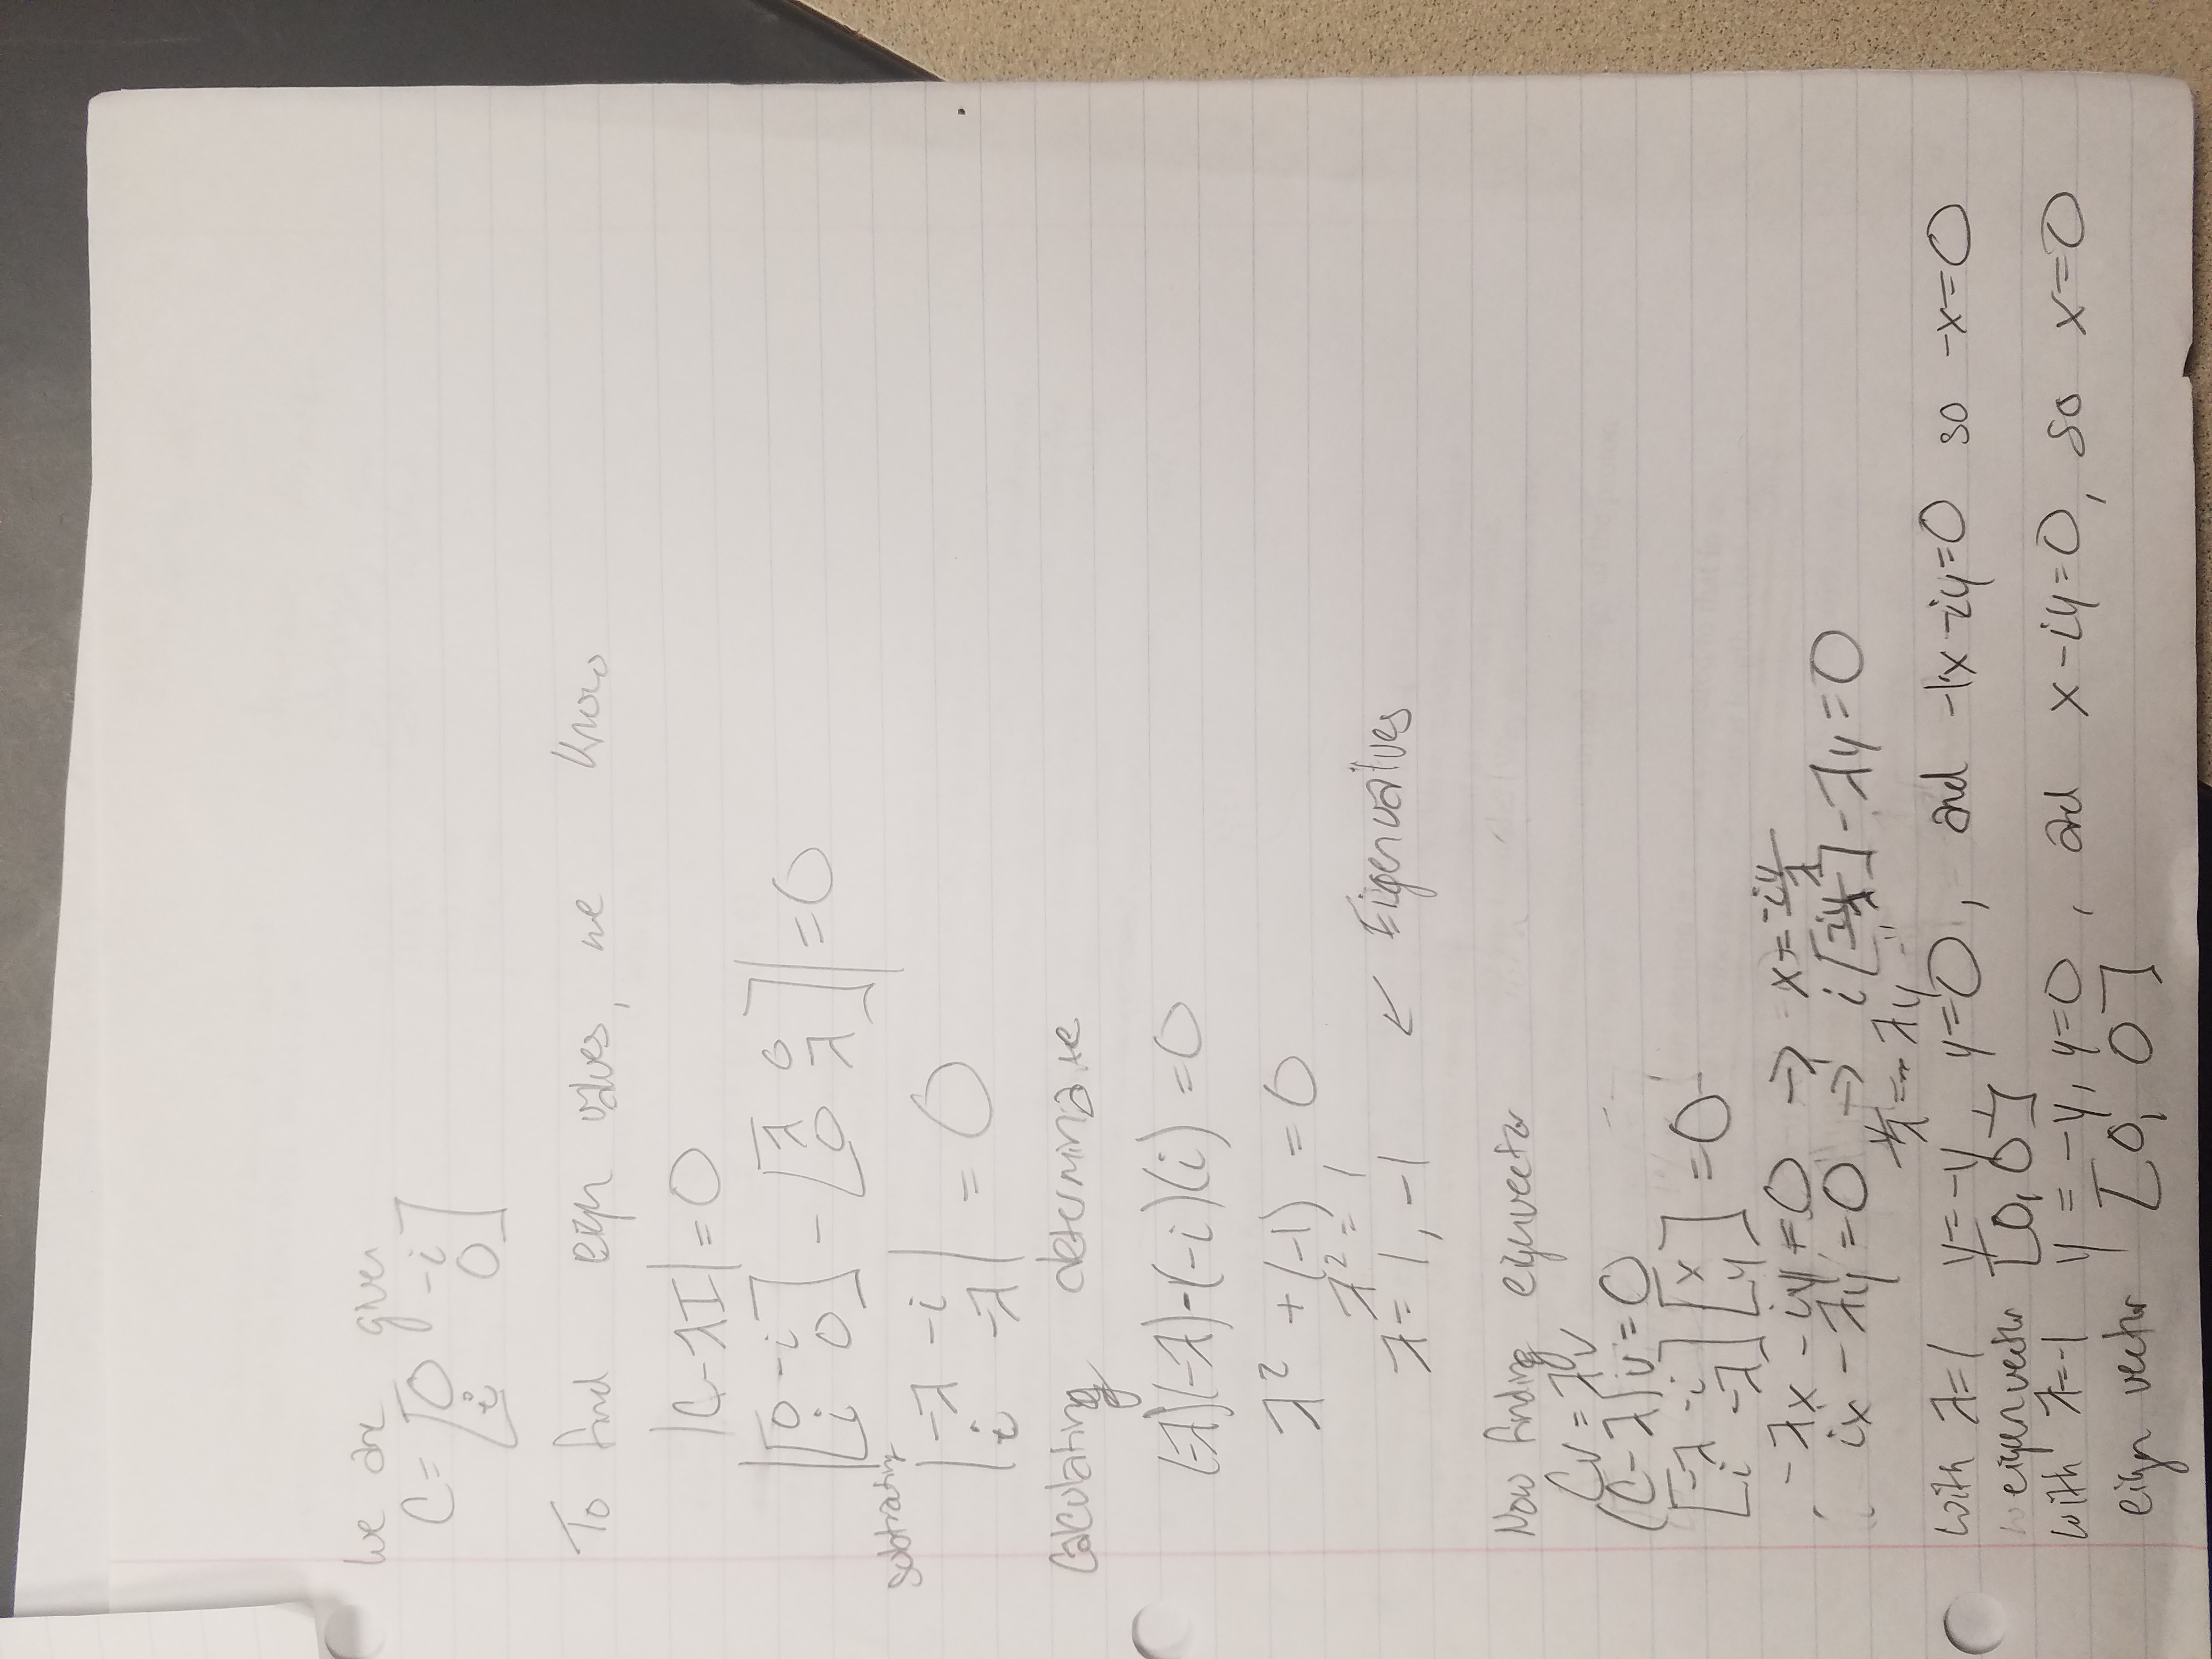 We are given
C = [0 -i
i 0]
To find eign values, we know
|C-λI| = 0
|[0 -i
i 0] - [λ 0
0 λ]| = 0
Subtrating
|-λ -i
i -λ| = 0
Calculating determinate
(-λ)(-λ)-(-i)(i) = 0
λ² + (-1) = 0
λ² = 1
λ = 1, -1 ↙ Eigenvalues
Now finding eigenvector
Cv = λv
(C-λ)v = 0
[-λ -i
i -λ] [x
y] = 0
-λx - iy = 0 → x = -iy/λ
ix - λy = 0 → i[-iy/λ] - λy = 0
y/λ = -λy
with λ=1 y=-y, y=0, and -1x-iy=0 so -x=0
eigenvector [0, 0]
with λ=-1 y = -y, y=0, and x-iy=0, so x=0
eign vector [0, 0]